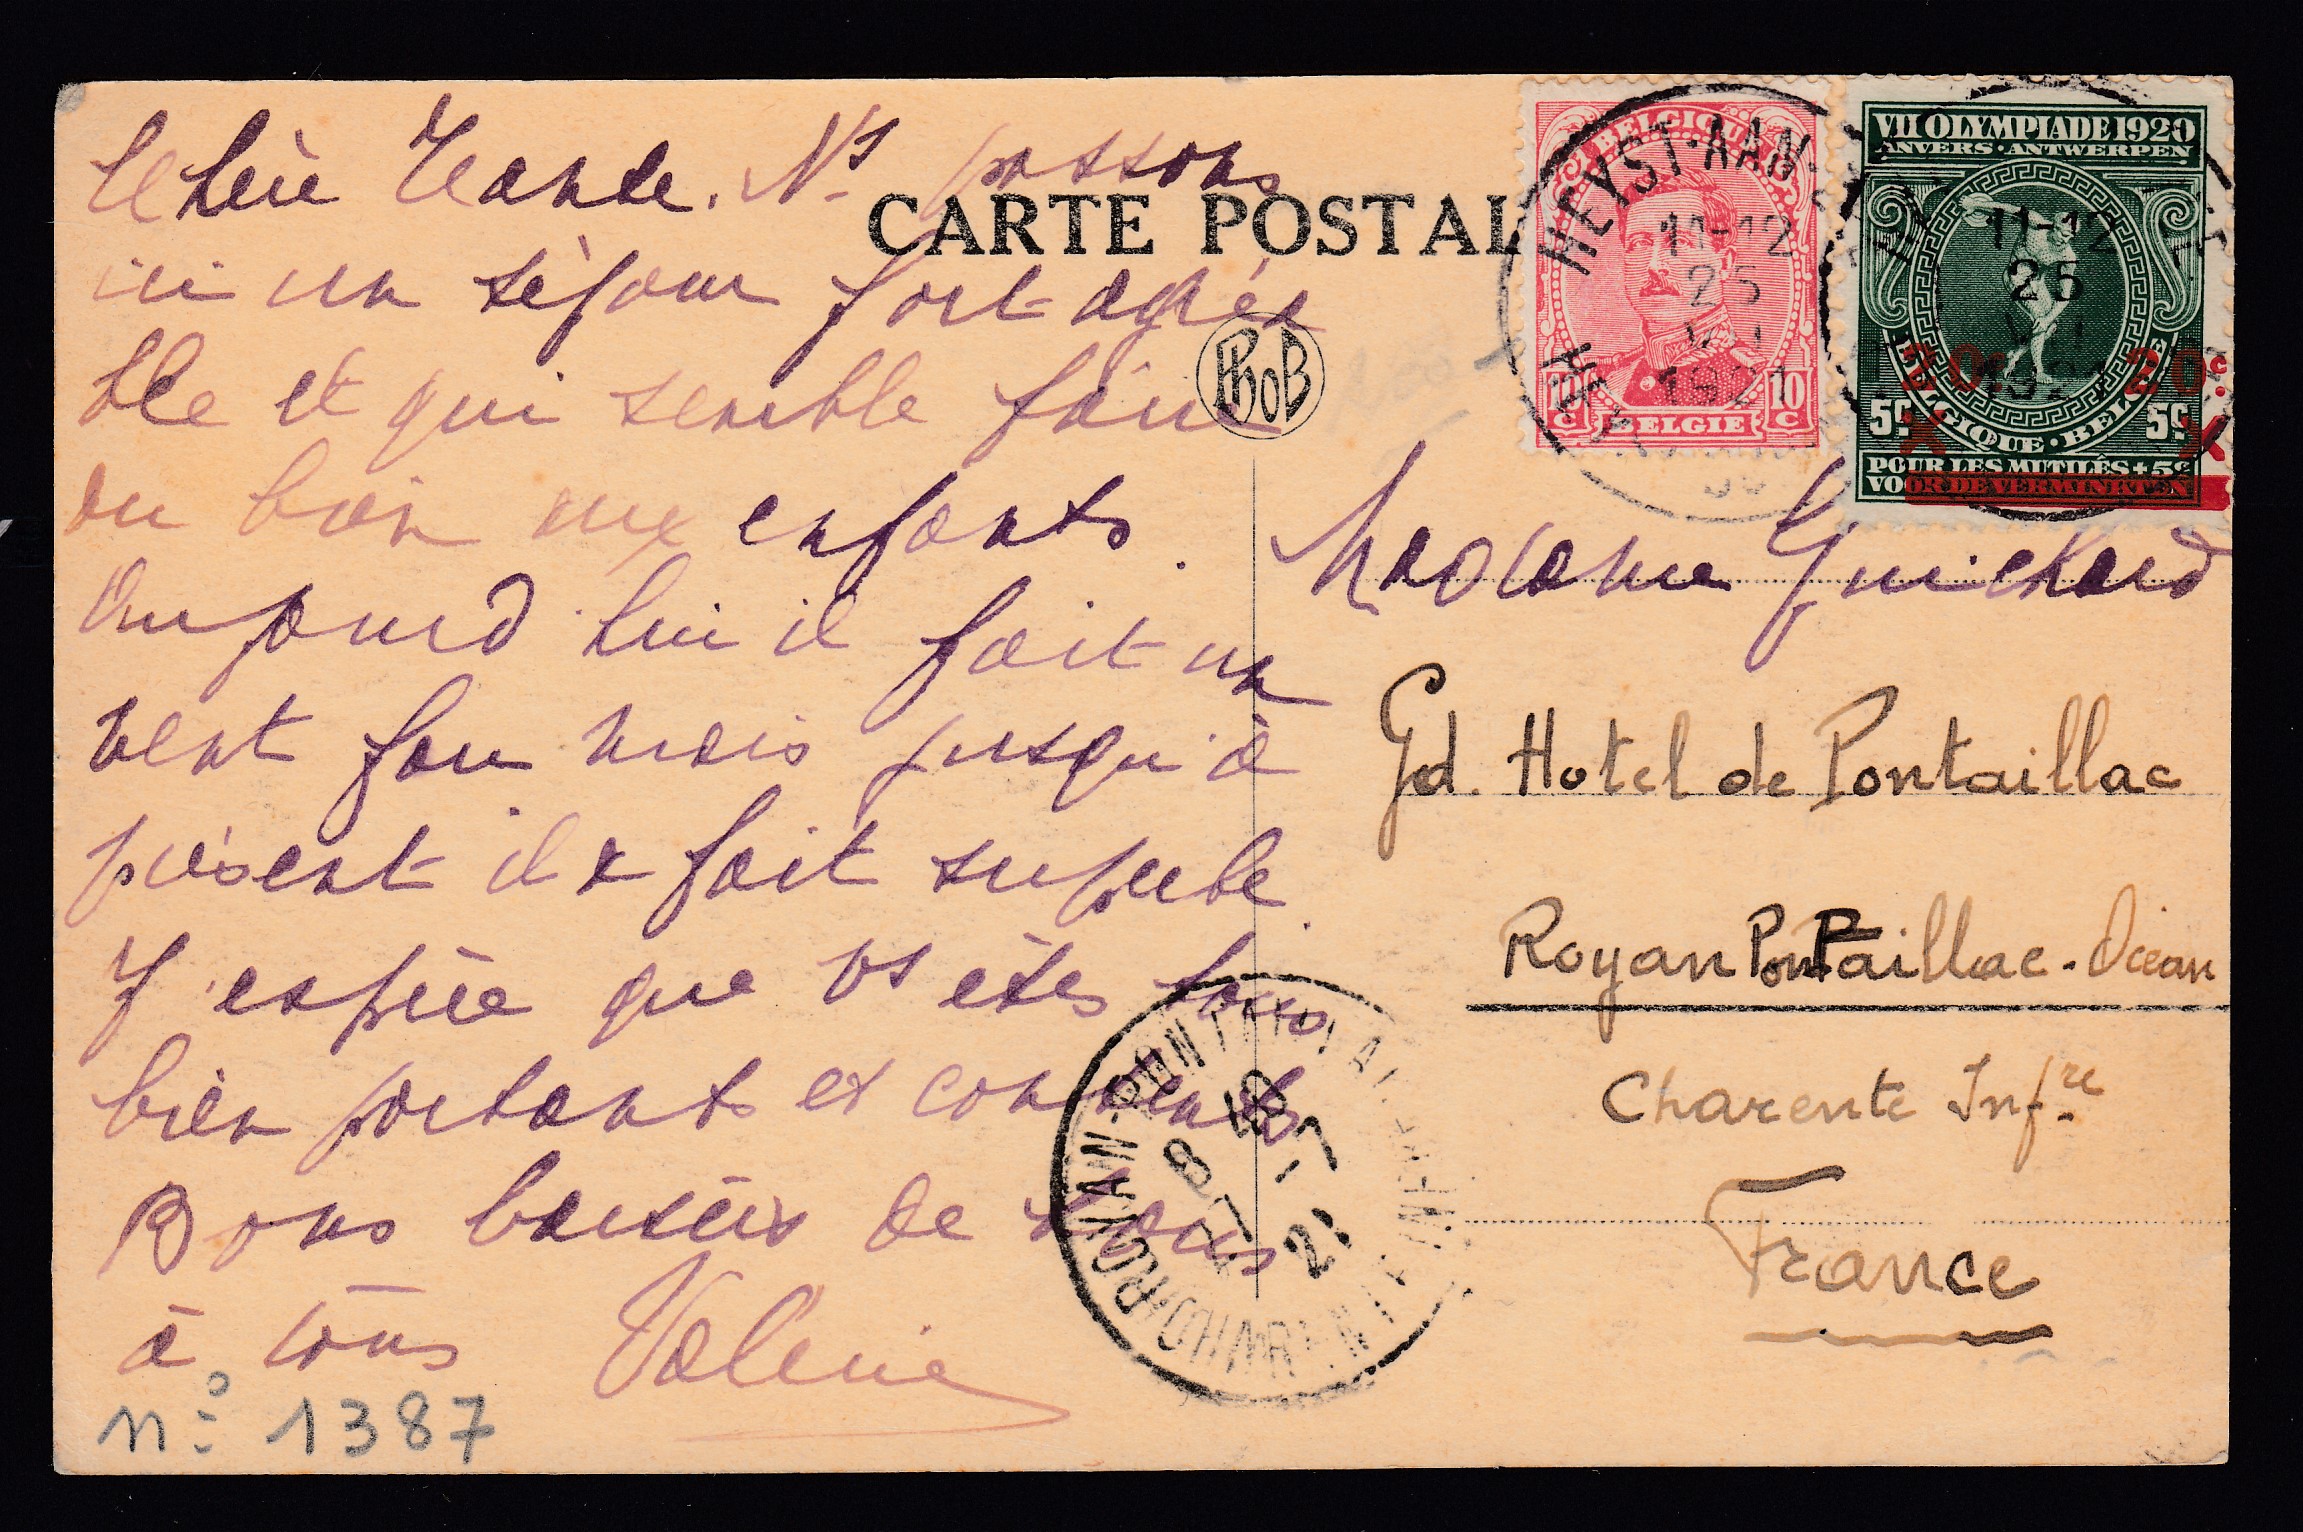 Chère Tante. Ns passons
ici un séjour fort agréa
ble et qui semble faire
du bien aux enfants.
Aujourd'hui il fait un
vent fou mais jusqu'à
présent il a fait superbe.
J'espère que vs êtes tous
bien portants et contents
Bons baisers de nous
à tous Valérie
n° 1387
CARTE POSTAL
PhoB
BELGIQUE
10 c 10 c
BELGIE
HEYST-AAN-
11-12
25
VII
1921
VII OLYMPIADE 1920
ANVERS · ANTWERPEN
11-12
25
20c. 20c.
5c BELGIQUE · BELGIE 5c
POUR LES MUTILÉS + 5c
VOOR DE VERMINKTEN
Madame Guichard
Gd. Hotel de Pontaillac
Royan Pontaillac - Océan
Charente Infre
France
ROYAN-PONTAILLAC
18
8 -7
21